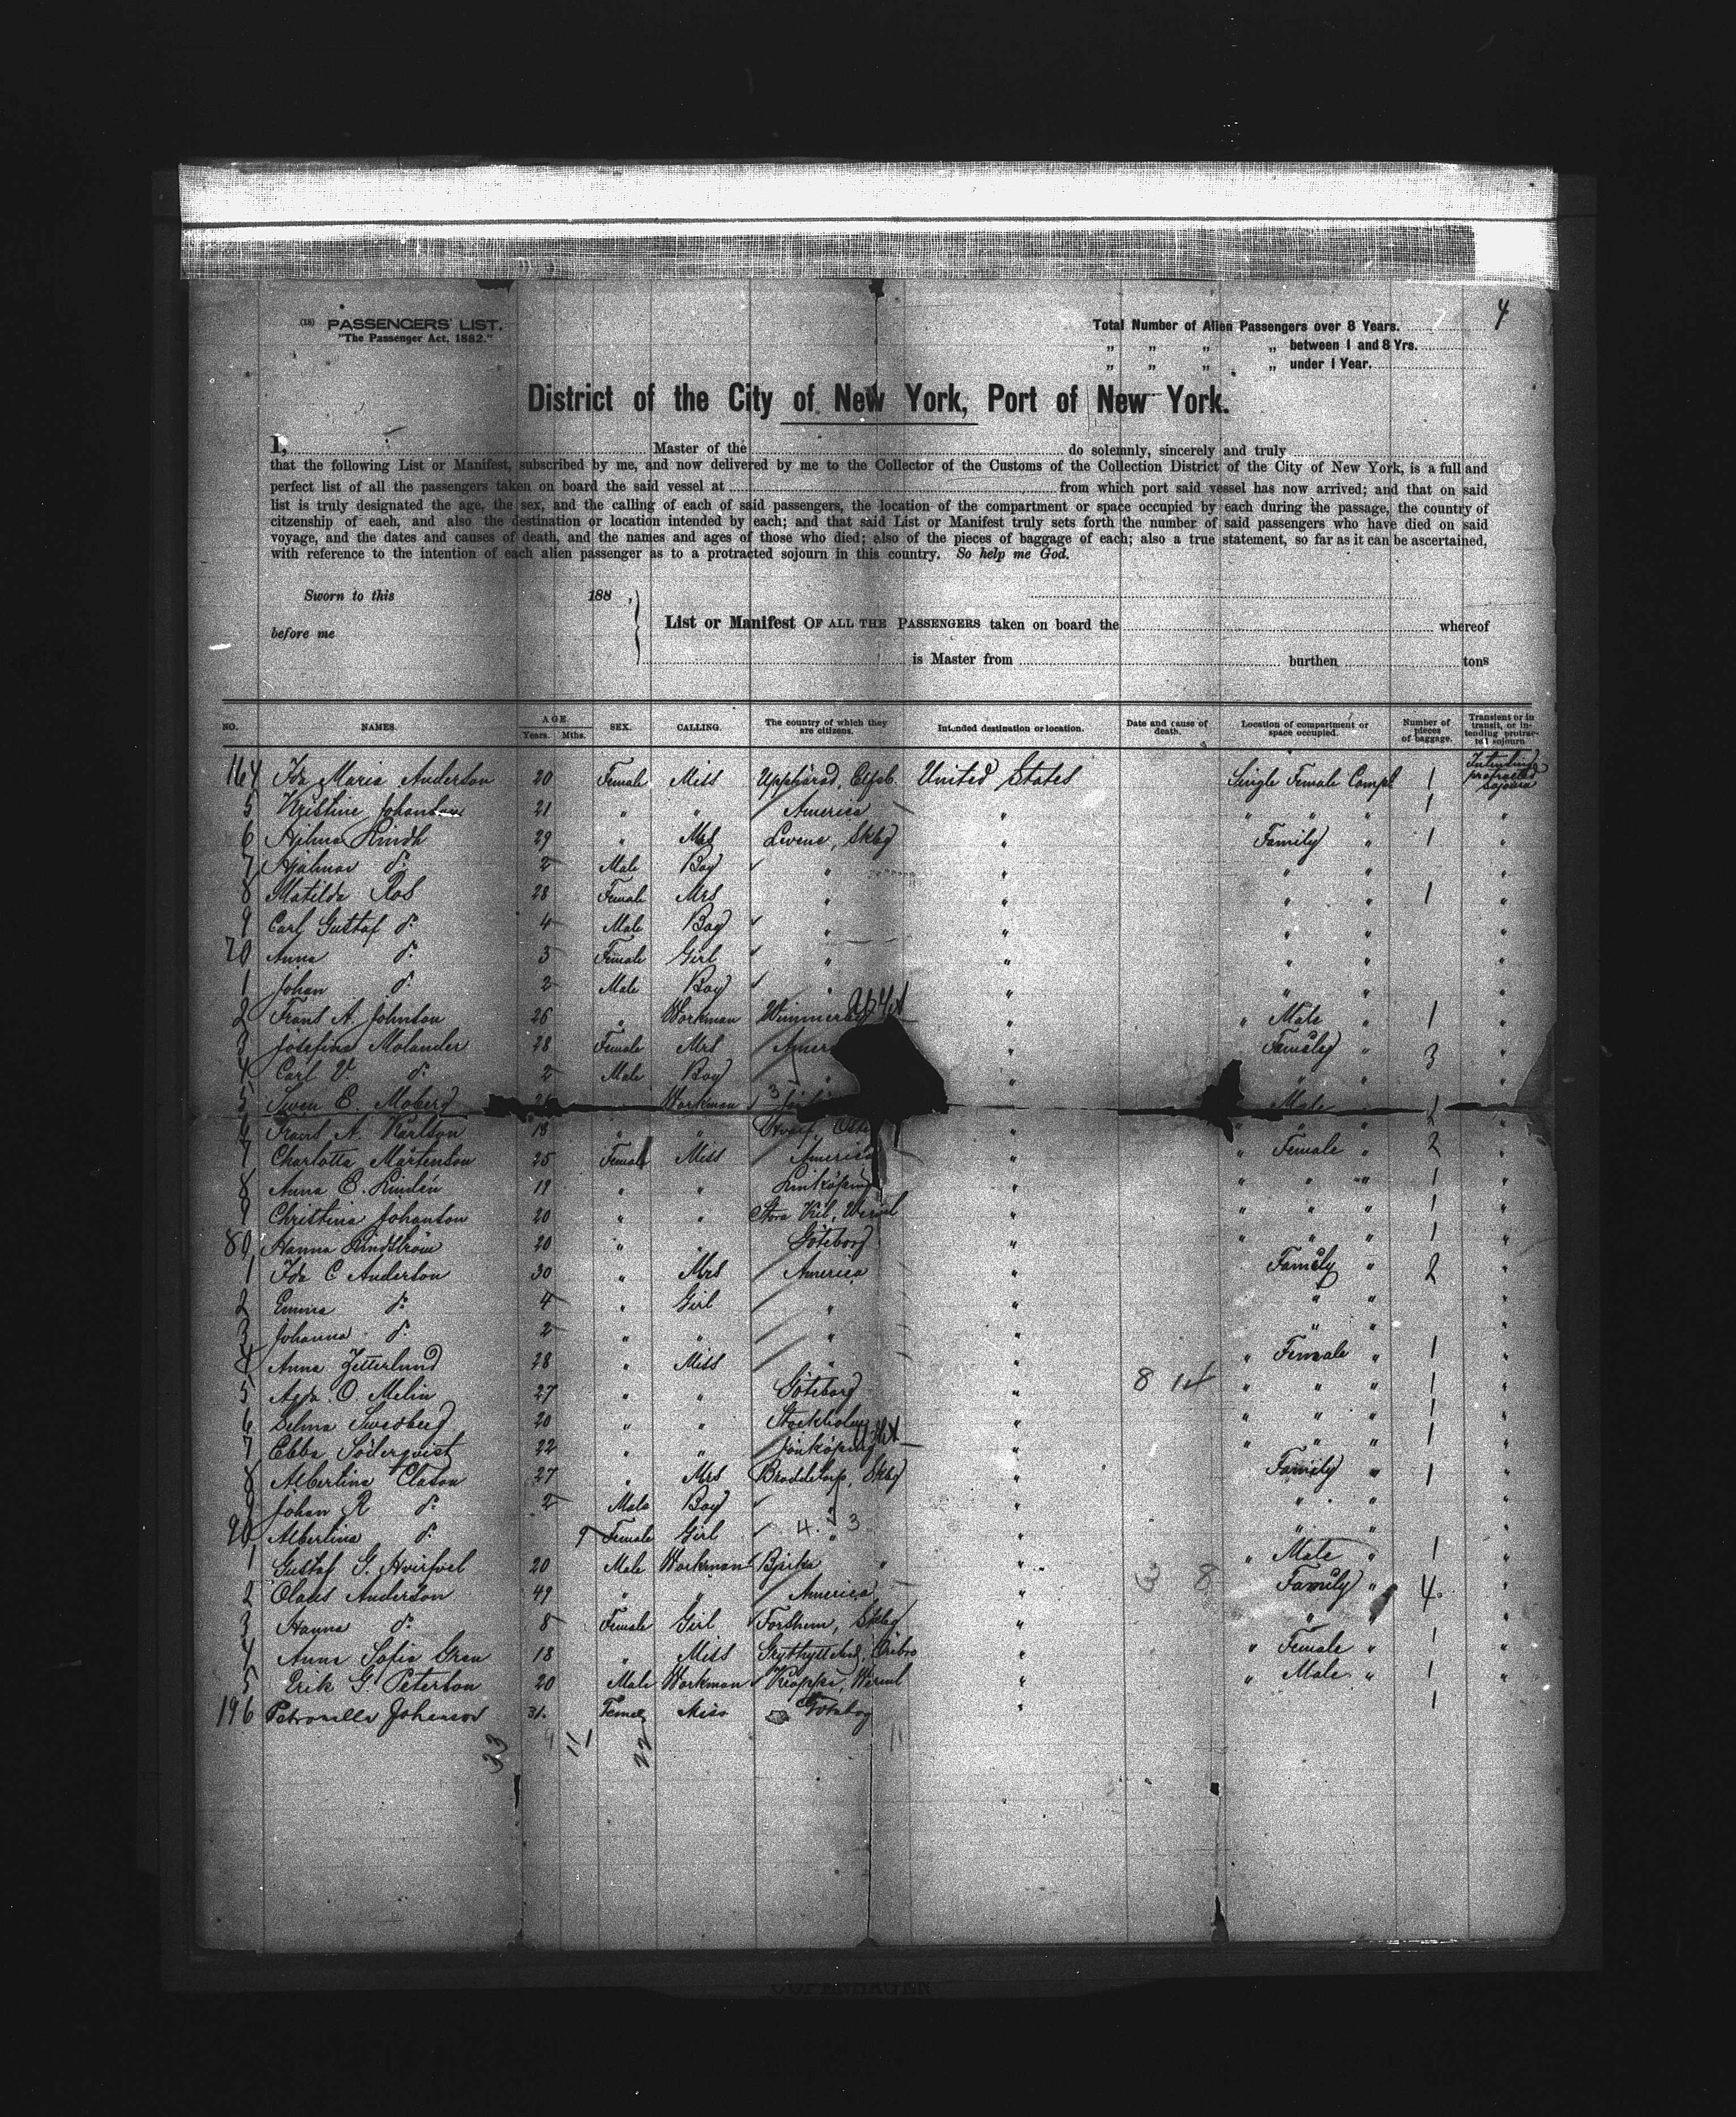 4
(18) PASSENGERS' LIST.
"The Passenger Act, 1882."
Total Number of Alien Passengers over 8 Years.
„ „ „ „ between 1 and 8 Yrs.
„ „ „ „ under 1 Year.
District of the City of New York, Port of New York.
I, Master of the do solemnly, sincerely and truly
that the following List or Manifest, subscribed by me, and now delivered by me to the Collector of the Customs of the Collection District of the City of New York, is a full and
perfect list of all the passengers taken on board the said vessel at from which port said vessel has now arrived; and that on said
list is truly designated the age, the sex, and the calling of each of said passengers, the location of the compartment or space occupied by each during the passage, the country of
citzenship of eaeh, and also the destination or location intended by each; and that said List or Manifest truly sets forth the number of said passengers who have died on said
voyage, and the dates and causes of death, and the names and ages of those who died; also of the pieces of baggage of each; also a true statement, so far as it can be ascertained,
with reference to the intention of each alien passenger as to a protracted sojourn in this country. So help me God.
Sworn to this 188 ,
before me
List or Manifest OF ALL THE PASSENGERS taken on board the whereof
is Master from burthen tons
NO. NAMES AGE Years. Mths. SEX. CALLING. The country of which they are citizens. Intended destination or location. Date and cause of death. Location of compartment or space occupied. Number of pieces of baggage. Transient or in transit, or intending protracted sojourn
164 Ida Maria Anderson 20 Female Miss Upphärad, Elfsb. United States Single Female Compt 1 Intending protracted sojourn
5 Kristine Johanson 21 " " America " " " " 1 "
6 Hilma Lindh 29 " Mrs Levene, Skbg " Family " 1 "
7 Hjalmar do 2 Male Boy " " " " "
8 Matilda Ros 28 Female Mrs " " " " 1 "
9 Carl Gustaf do 4 Male Boy " " " " "
70 Anna do 3 Female Girl " " " " "
1 Johan do 2 Male Boy " " " " "
2 Frans A. Johnson 26 " Workman " " Male " 1 "
3 Josefina Molander 28 Female Mrs Amer " Family " 3 "
4 Carl V. do 2 Male Boy " " " " "
5 Swen E. Moberg Workman Male 1
6 Frans A. Karlson 18 " " " " " "
7 Charlotta Mårtenson 25 Female Miss America " " Female " 2 "
8 Anna E. Lindén 19 " " Linköping " " " " 1 "
9 Christina Johanson 20 " " Stora Kil, Werml " " " " 1 "
80 Hanna Lindström 20 " " Göteborg " " " " 1 "
1 Ida C Anderson 30 " Mrs America " Family " 2 "
2 Emma do 4 " Girl " " " " "
3 Johanna do 2 " " " " " " "
4 Anna Zetterlund 28 " Miss " " " Female " 1 "
5 Agda O Melin 27 " " Göteborg " " " " 1 "
6 Selma Swedberg 20 " " Stockholm " " " " 1 "
7 Ebba Söderqvist 22 " " Jönköping " " " " 1 "
8 Albertina Clason 27 " Mrs Broddetorp, Skbg " Family " 1 "
9 Johan R do 2 Male Boy " " " " "
90 Albertina do 9 Female Girl " 4. 3 " " "
1 Gustaf G. 20 Male Workman Björka " " " Male " 1 "
2 Olaus Anderson 49 " " America " Family " 4 "
3 Hanna do 8 Female Girl Forshem, Skbg " " "
4 Anna Sofia Gren 18 " Miss Grythyttehed, Örebro " " Female " 1 "
5 Erik G. Peterson 20 Male Workman Kroppa, Werml " " Male " 1 "
196 Petronella Johanson 31. Female Miss Göteborg " 1
33 11 22